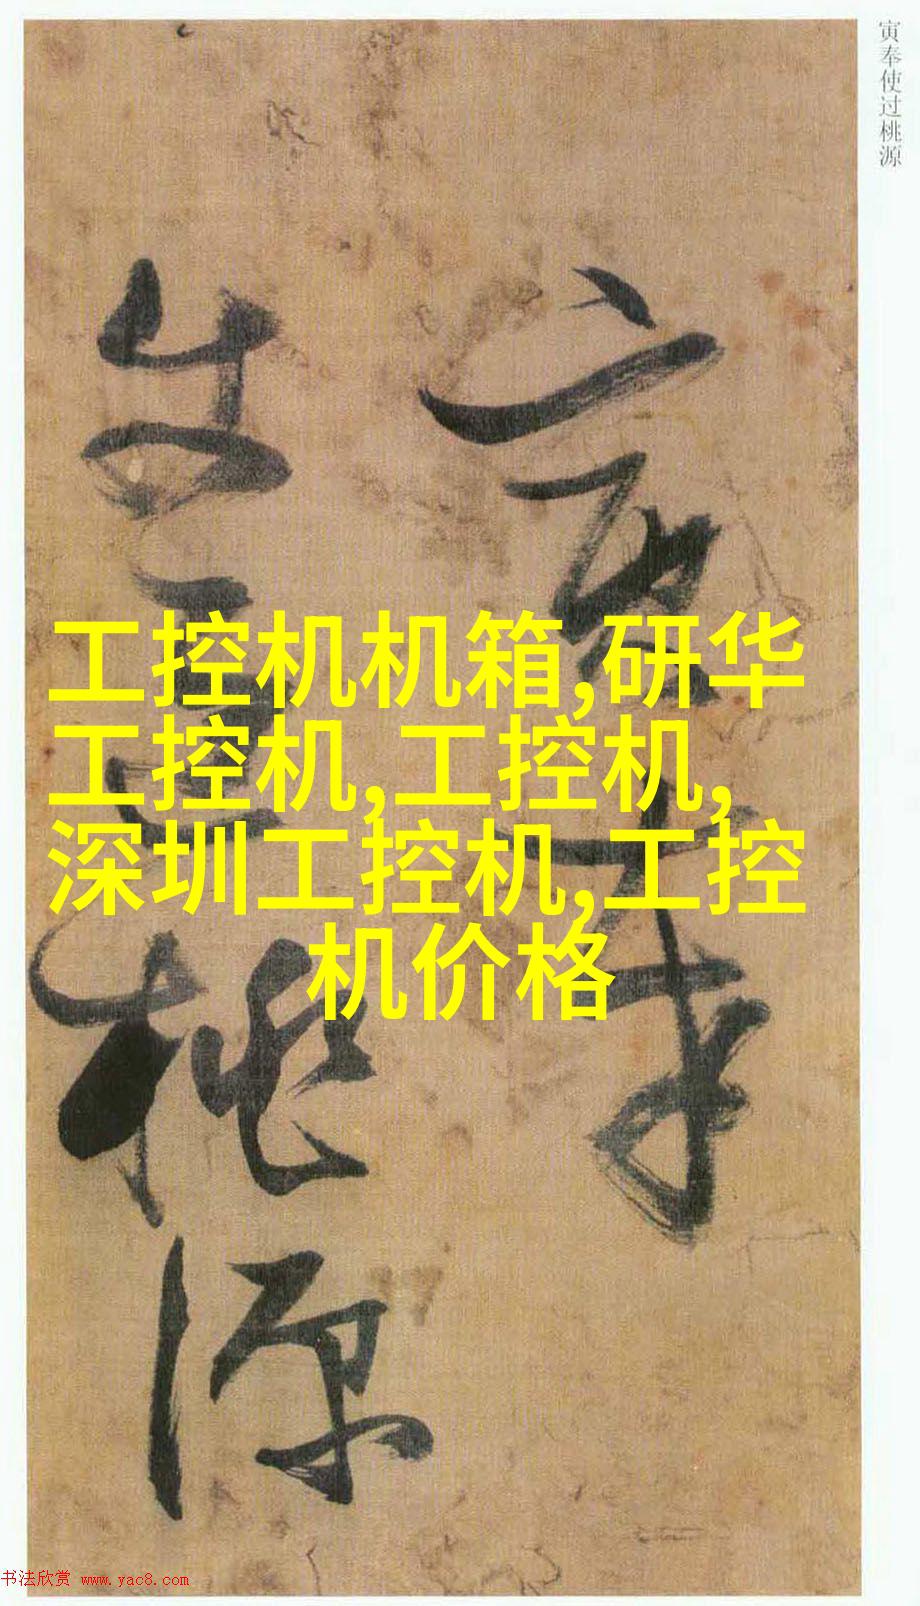 寅奉使过桃源
寅奉
使过桃源
工控机机箱,研华
工控机,工控机,
深圳工控机,工控
机价格
书法欣赏 www.yac8.com